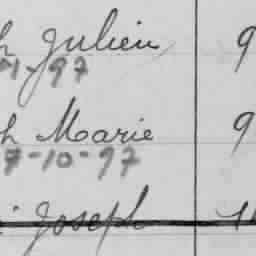 h Julien 9
1-97
h Marie 9
7-10-97
Joseph